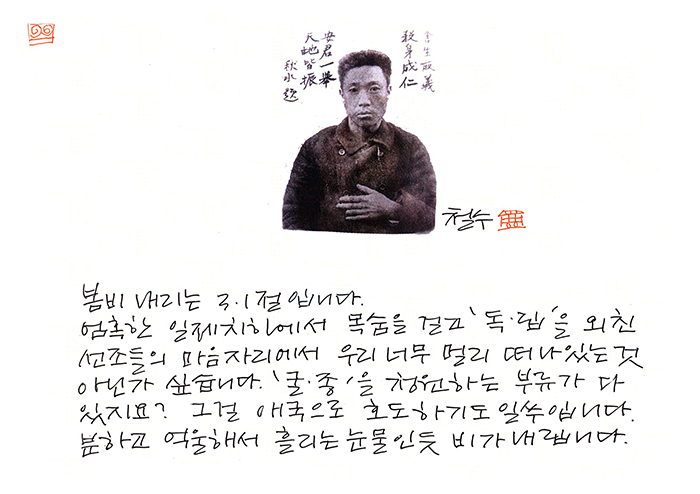 舍生取義
殺身成仁
安君一擧
天地皆振
秋水題
철수
봄비 내리는 3.1절입니다.
엄혹한 일제치하에서 목숨을 걸고 '독·립'을 외친
선조들의 마음자리에서 우리 너무 멀리 떠나있는 것
아닌가 싶습니다. '굴·종'을 청원하는 부류가 다
있지요? 그걸 애국으로 호도하기도 일쑤입니다.
분하고 억울해서 흘리는 눈물인듯 비가 내립니다.